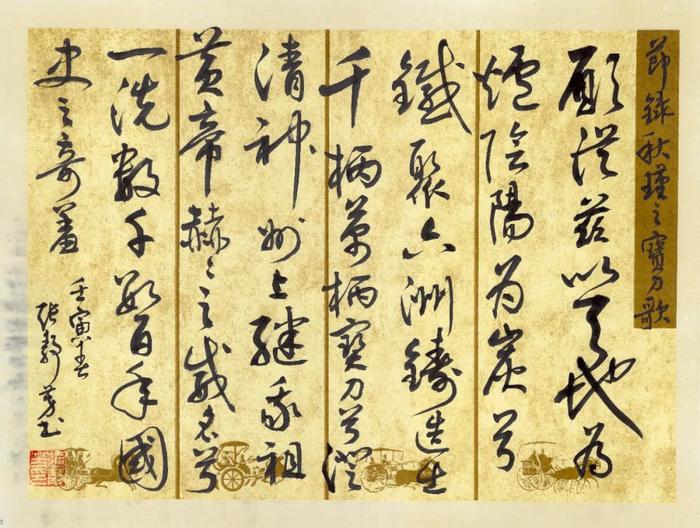 節錄秋瑾之寶刀歌
願從茲以天地為
爐陰陽為炭兮
鐵聚六洲鑄造出
千柄萬柄寶刀兮澄
清神州上繼我祖
黃帝赫々之威名兮
一洗數千數百年國
史之奇羞
壬寅春
張書